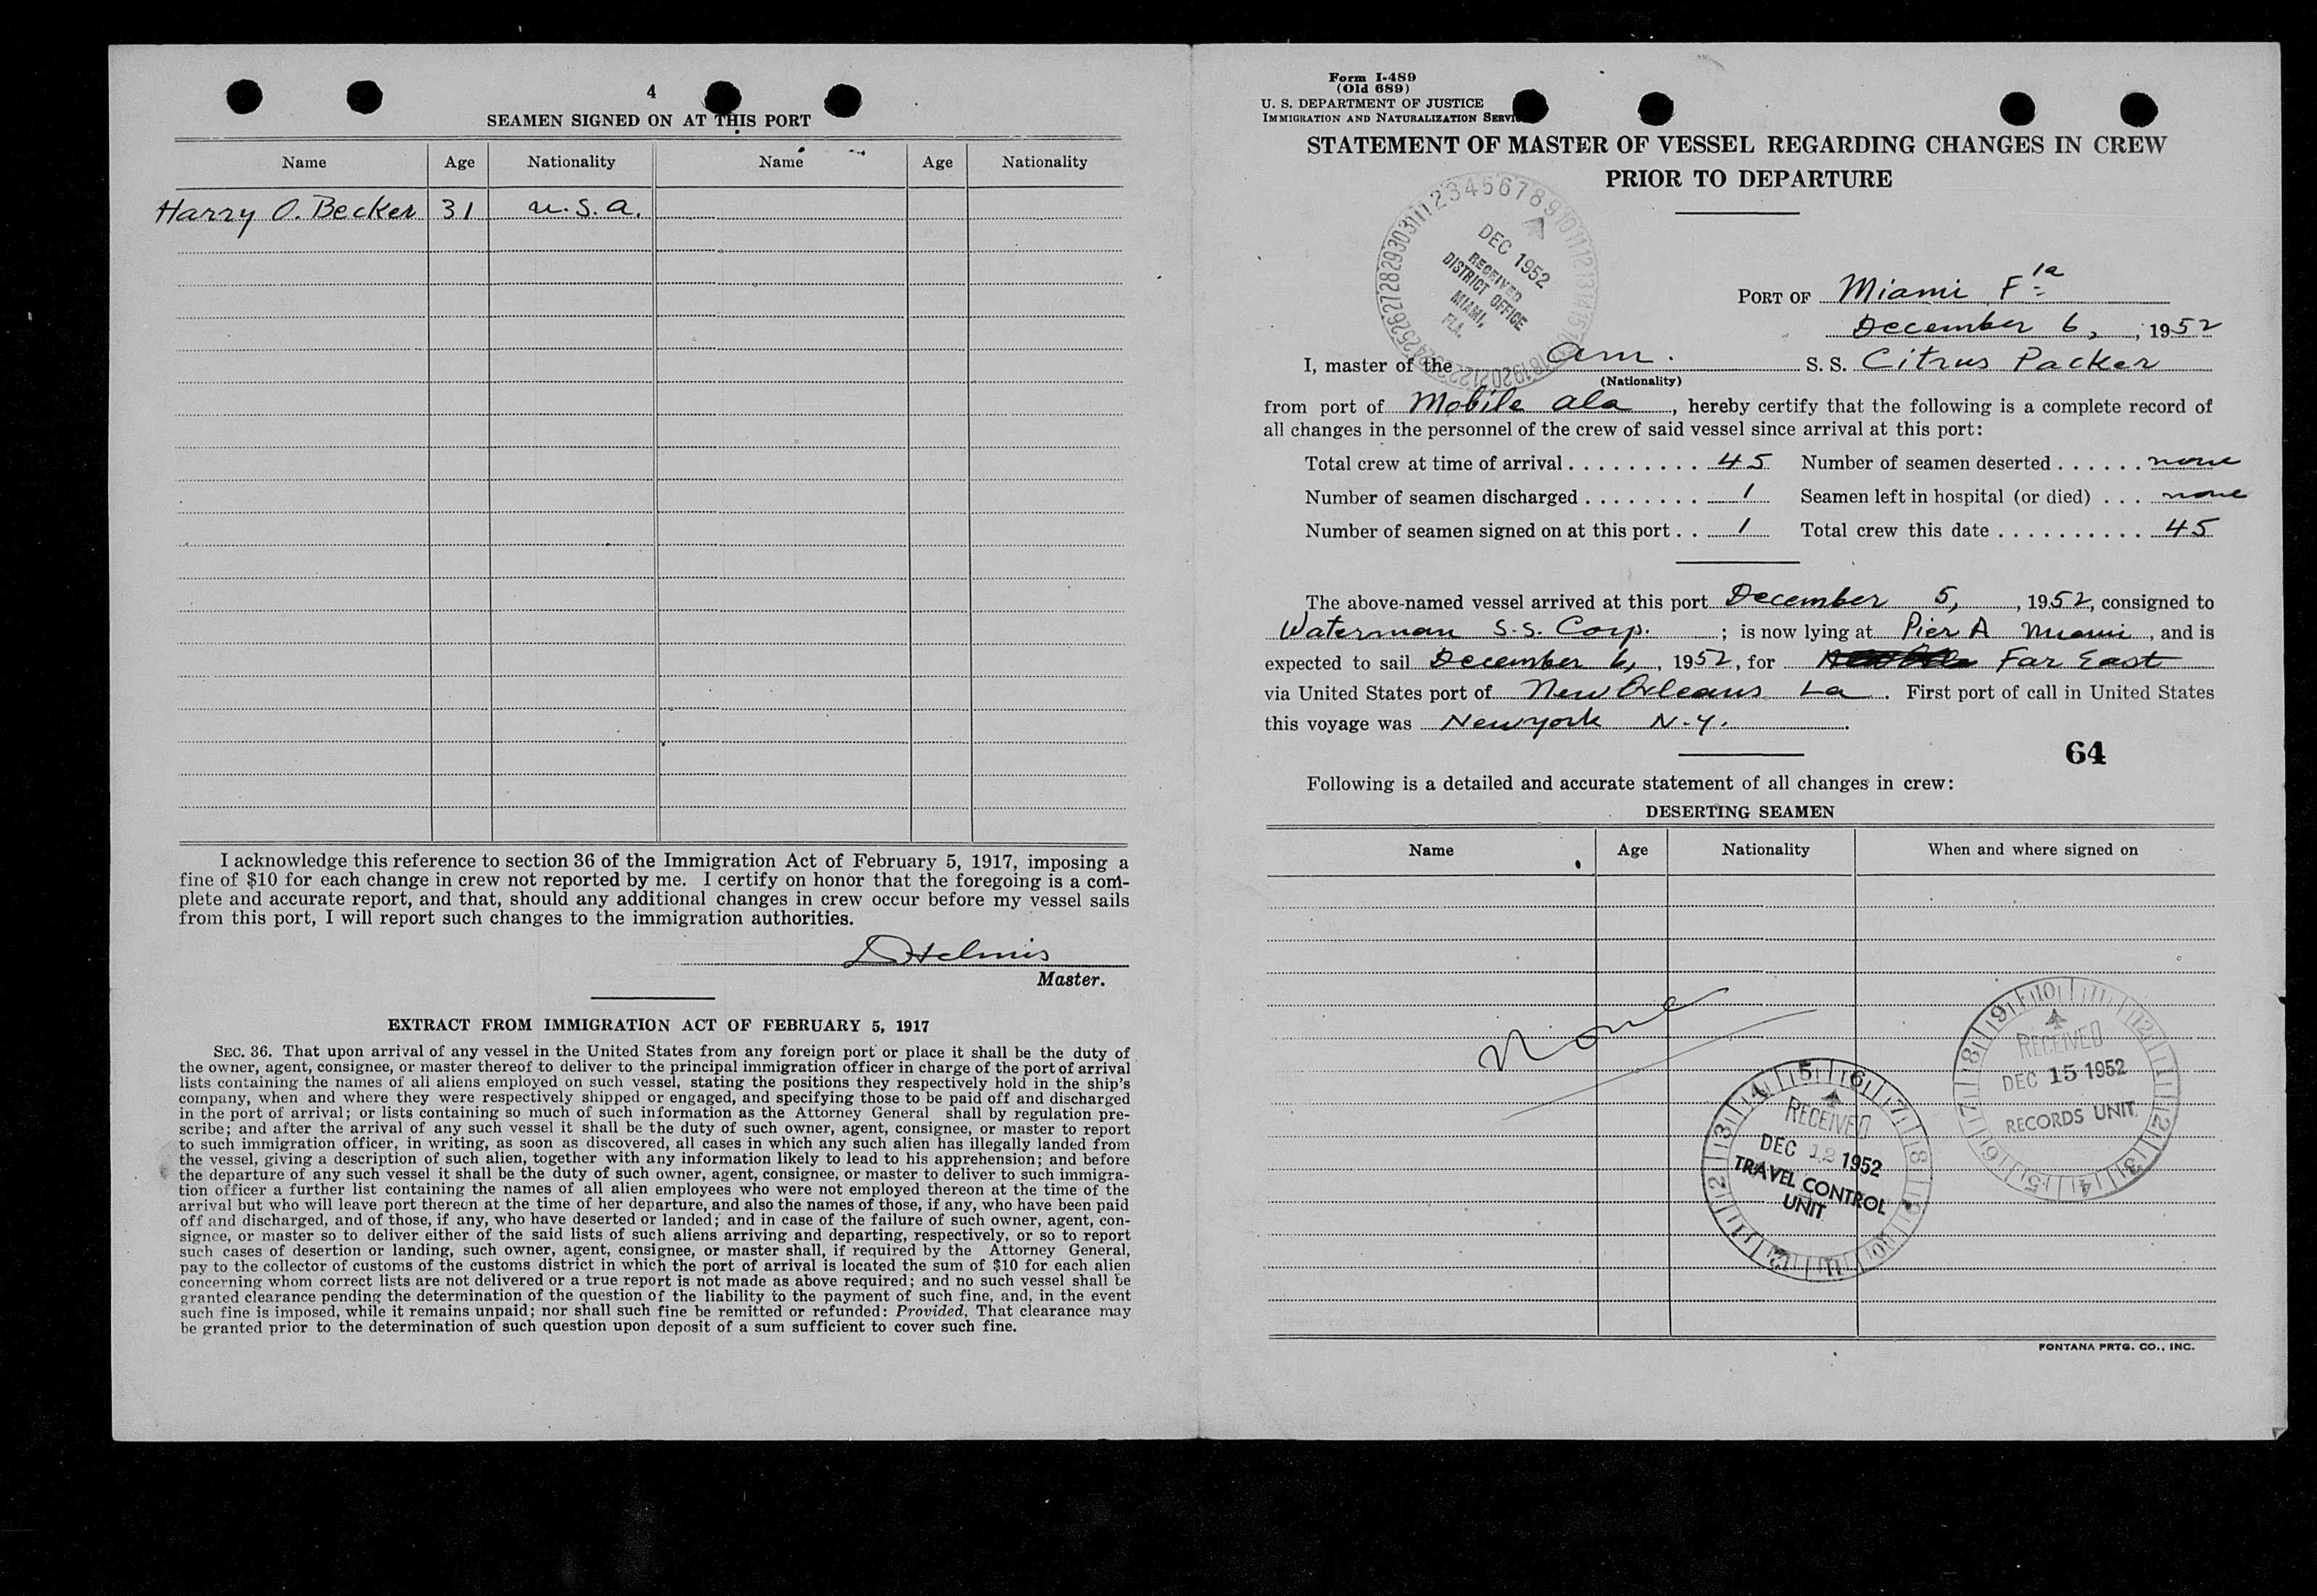 4
SEAMEN SIGNED ON AT THIS PORT
Name Age Nationality Name Age Nationality
Harry O. Becker 31 U.S.A.
I acknowledge this reference to section 36 of the Immigration Act of February 5, 1917, imposing a
fine of $10 for each change in crew not reported by me. I certify on honor that the foregoing is a com-
plete and accurate report, and that, should any additional changes in crew occur before my vessel sails
from this port, I will report such changes to the immigration authorities.
Master.
EXTRACT FROM IMMIGRATION ACT OF FEBRUARY 5, 1917
SEC. 36. That upon arrival of any vessel in the United States from any foreign port or place it shall be the duty of
the owner, agent, consignee, or master thereof to deliver to the principal immigration officer in charge of the port of arrival
lists containing the names of all aliens employed on such vessel, stating the positions they respectively hold in the ship's
company, when and where they were respectively shipped or engaged, and specifying those to be paid off and discharged
in the port of arrival; or lists containing so much of such information as the Attorney General shall by regulation pre-
scribe; and after the arrival of any such vessel it shall be the duty of such owner, agent, consignee, or master to report
to such immigration officer, in writing, as soon as discovered, all cases in which any such alien has illegally landed from
the vessel, giving a description of such alien, together with any information likely to lead to his apprehension; and before
the departure of any such vessel it shall be the duty of such owner, agent, consignee, or master to deliver to such immigra-
tion officer a further list containing the names of all alien employees who were not employed thereon at the time of the
arrival but who will leave port thereon at the time of her departure, and also the names of those, if any, who have been paid
off and discharged, and of those, if any, who have deserted or landed; and in case of the failure of such owner, agent, con-
signee, or master so to deliver either of the said lists of such aliens arriving and departing, respectively, or so to report
such cases of desertion or landing, such owner, agent, consignee, or master shall, if required by the Attorney General,
pay to the collector of customs of the customs district in which the port of arrival is located the sum of $10 for each alien
concerning whom correct lists are not delivered or a true report is not made as above required; and no such vessel shall be
granted clearance pending the determination of the question of the liability to the payment of such fine, and, in the event
such fine is imposed, while it remains unpaid; nor shall such fine be remitted or refunded: Provided, That clearance may
be granted prior to the determination of such question upon deposit of a sum sufficient to cover such fine.
Form I-489
(Old 689)
U. S. DEPARTMENT OF JUSTICE
IMMIGRATION AND NATURALIZATION SERVICE
STATEMENT OF MASTER OF VESSEL REGARDING CHANGES IN CREW
PRIOR TO DEPARTURE
DEC 1952
RECEIVED
DISTRICT OFFICE
MIAMI,
FLA.
PORT OF Miami Fla
December 6, , 1952
I, master of the Am. S. S. Citrus Packer
(Nationality)
from port of Mobile Ala , hereby certify that the following is a complete record of
all changes in the personnel of the crew of said vessel since arrival at this port:
Total crew at time of arrival . . . . . . . . . 45 Number of seamen deserted . . . . . . none
Number of seamen discharged . . . . . . . . 1 Seamen left in hospital (or died) . . . none
Number of seamen signed on at this port . . 1 Total crew this date . . . . . . . . . . 45
The above-named vessel arrived at this port December 5, , 1952, consigned to
Waterman S.S. Corp. ; is now lying at Pier A Miami , and is
expected to sail December 6, , 1952, for Far East
via United States port of New Orleans La . First port of call in United States
this voyage was Newyork N.Y. .
64
Following is a detailed and accurate statement of all changes in crew:
DESERTING SEAMEN
Name Age Nationality When and where signed on
None
RECEIVED
DEC 15 1952
RECORDS UNIT
RECEIVED
DEC 12 1952
TRAVEL CONTROL
UNIT
FONTANA PRTG. CO., INC.